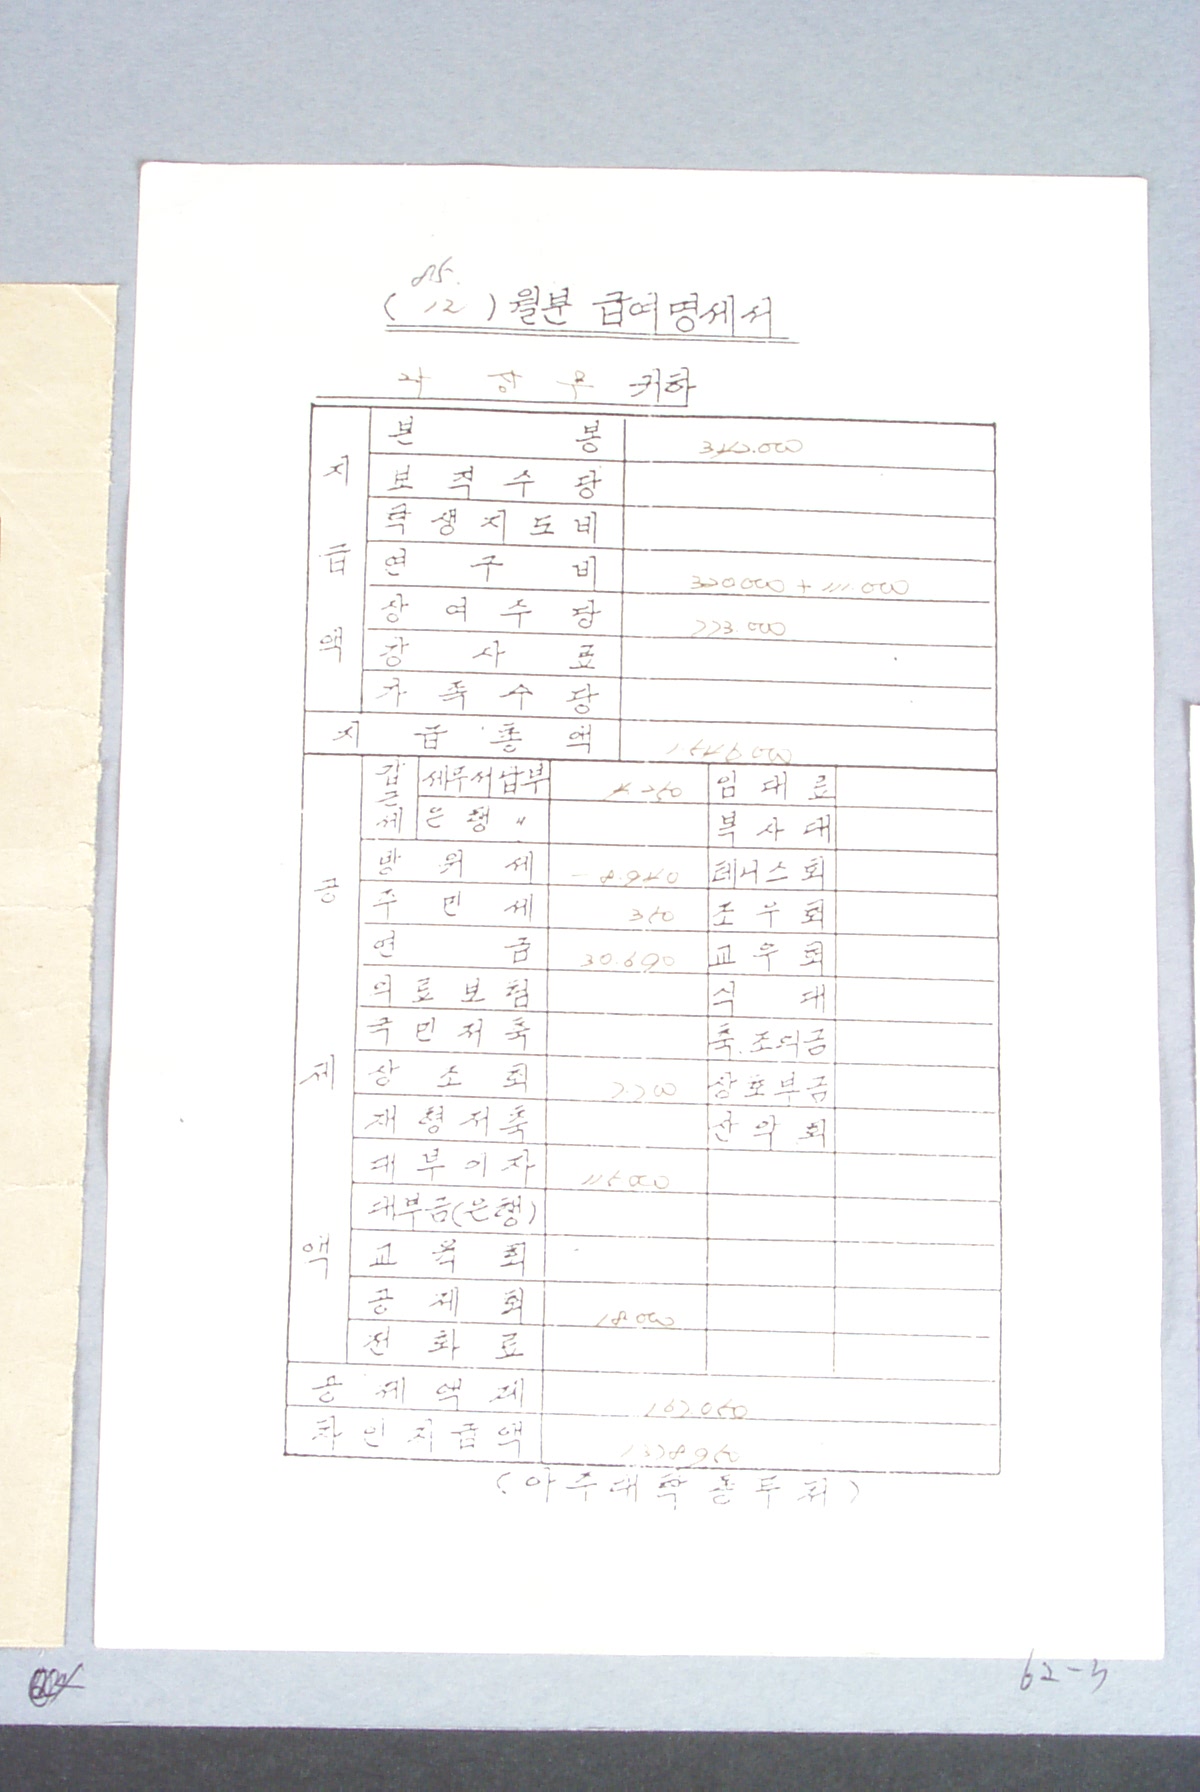 85.
( 12 ) 월분 급여명세서
귀하
지급액
본봉 342.000
보직수당
학생지도비
연구비 320000 + 111.000
상여수당 773.000
강사료
가족수당
지급총액 1.546.000
공제액
갑근세 세무서납부 임대료
은행 〃 북사대
방위세 8.940 테니스회
주민세 350 조우회
연금 30.690 교우회
의료보험 식대
국민저축 축.조의금
상소회 2.200 상호부금
재형저축 산악회
대부이자 115000
대부금(은행)
교육회
공제회 18.000
전화료
공제액계 167.050
차인지급액 1378950
(아주대학 총무처)
62-5